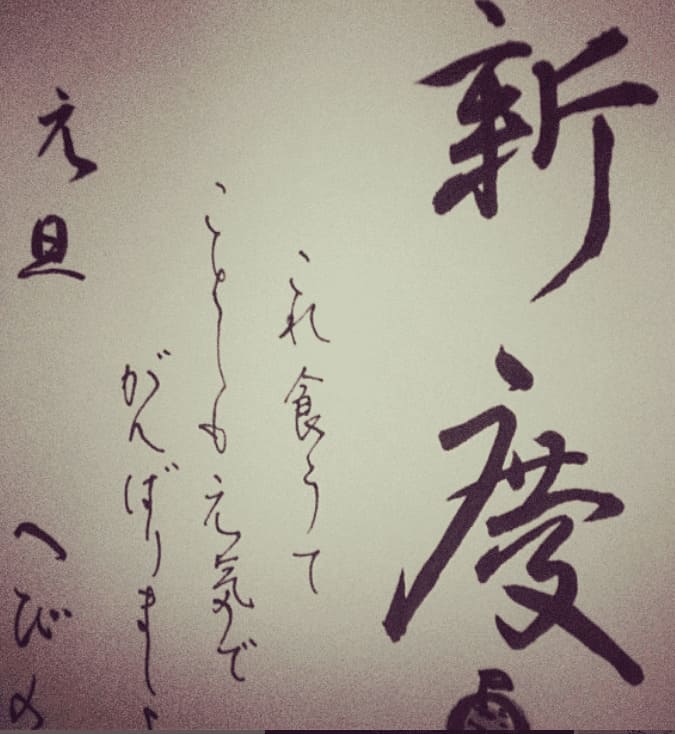 新慶
これ食うて
ことしも元気で
がんばりまし
元旦 へびの